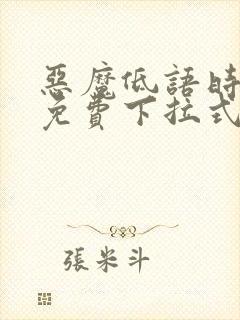 惡魔低語時
免費下拉式
張米斗